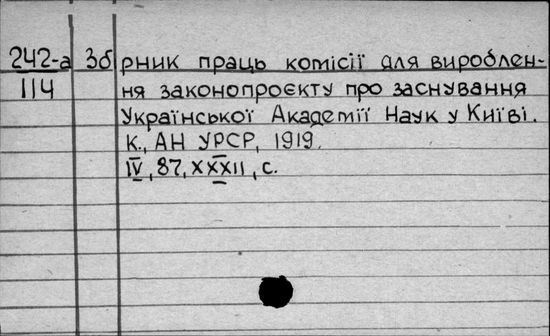 242-а Збірник праць комісії для вироблен-
114 ня законопроєкту про заснування
Української Академії Наук у Київі.
К., АН УРСР, 1919.
IV, 87, XXXII, с.